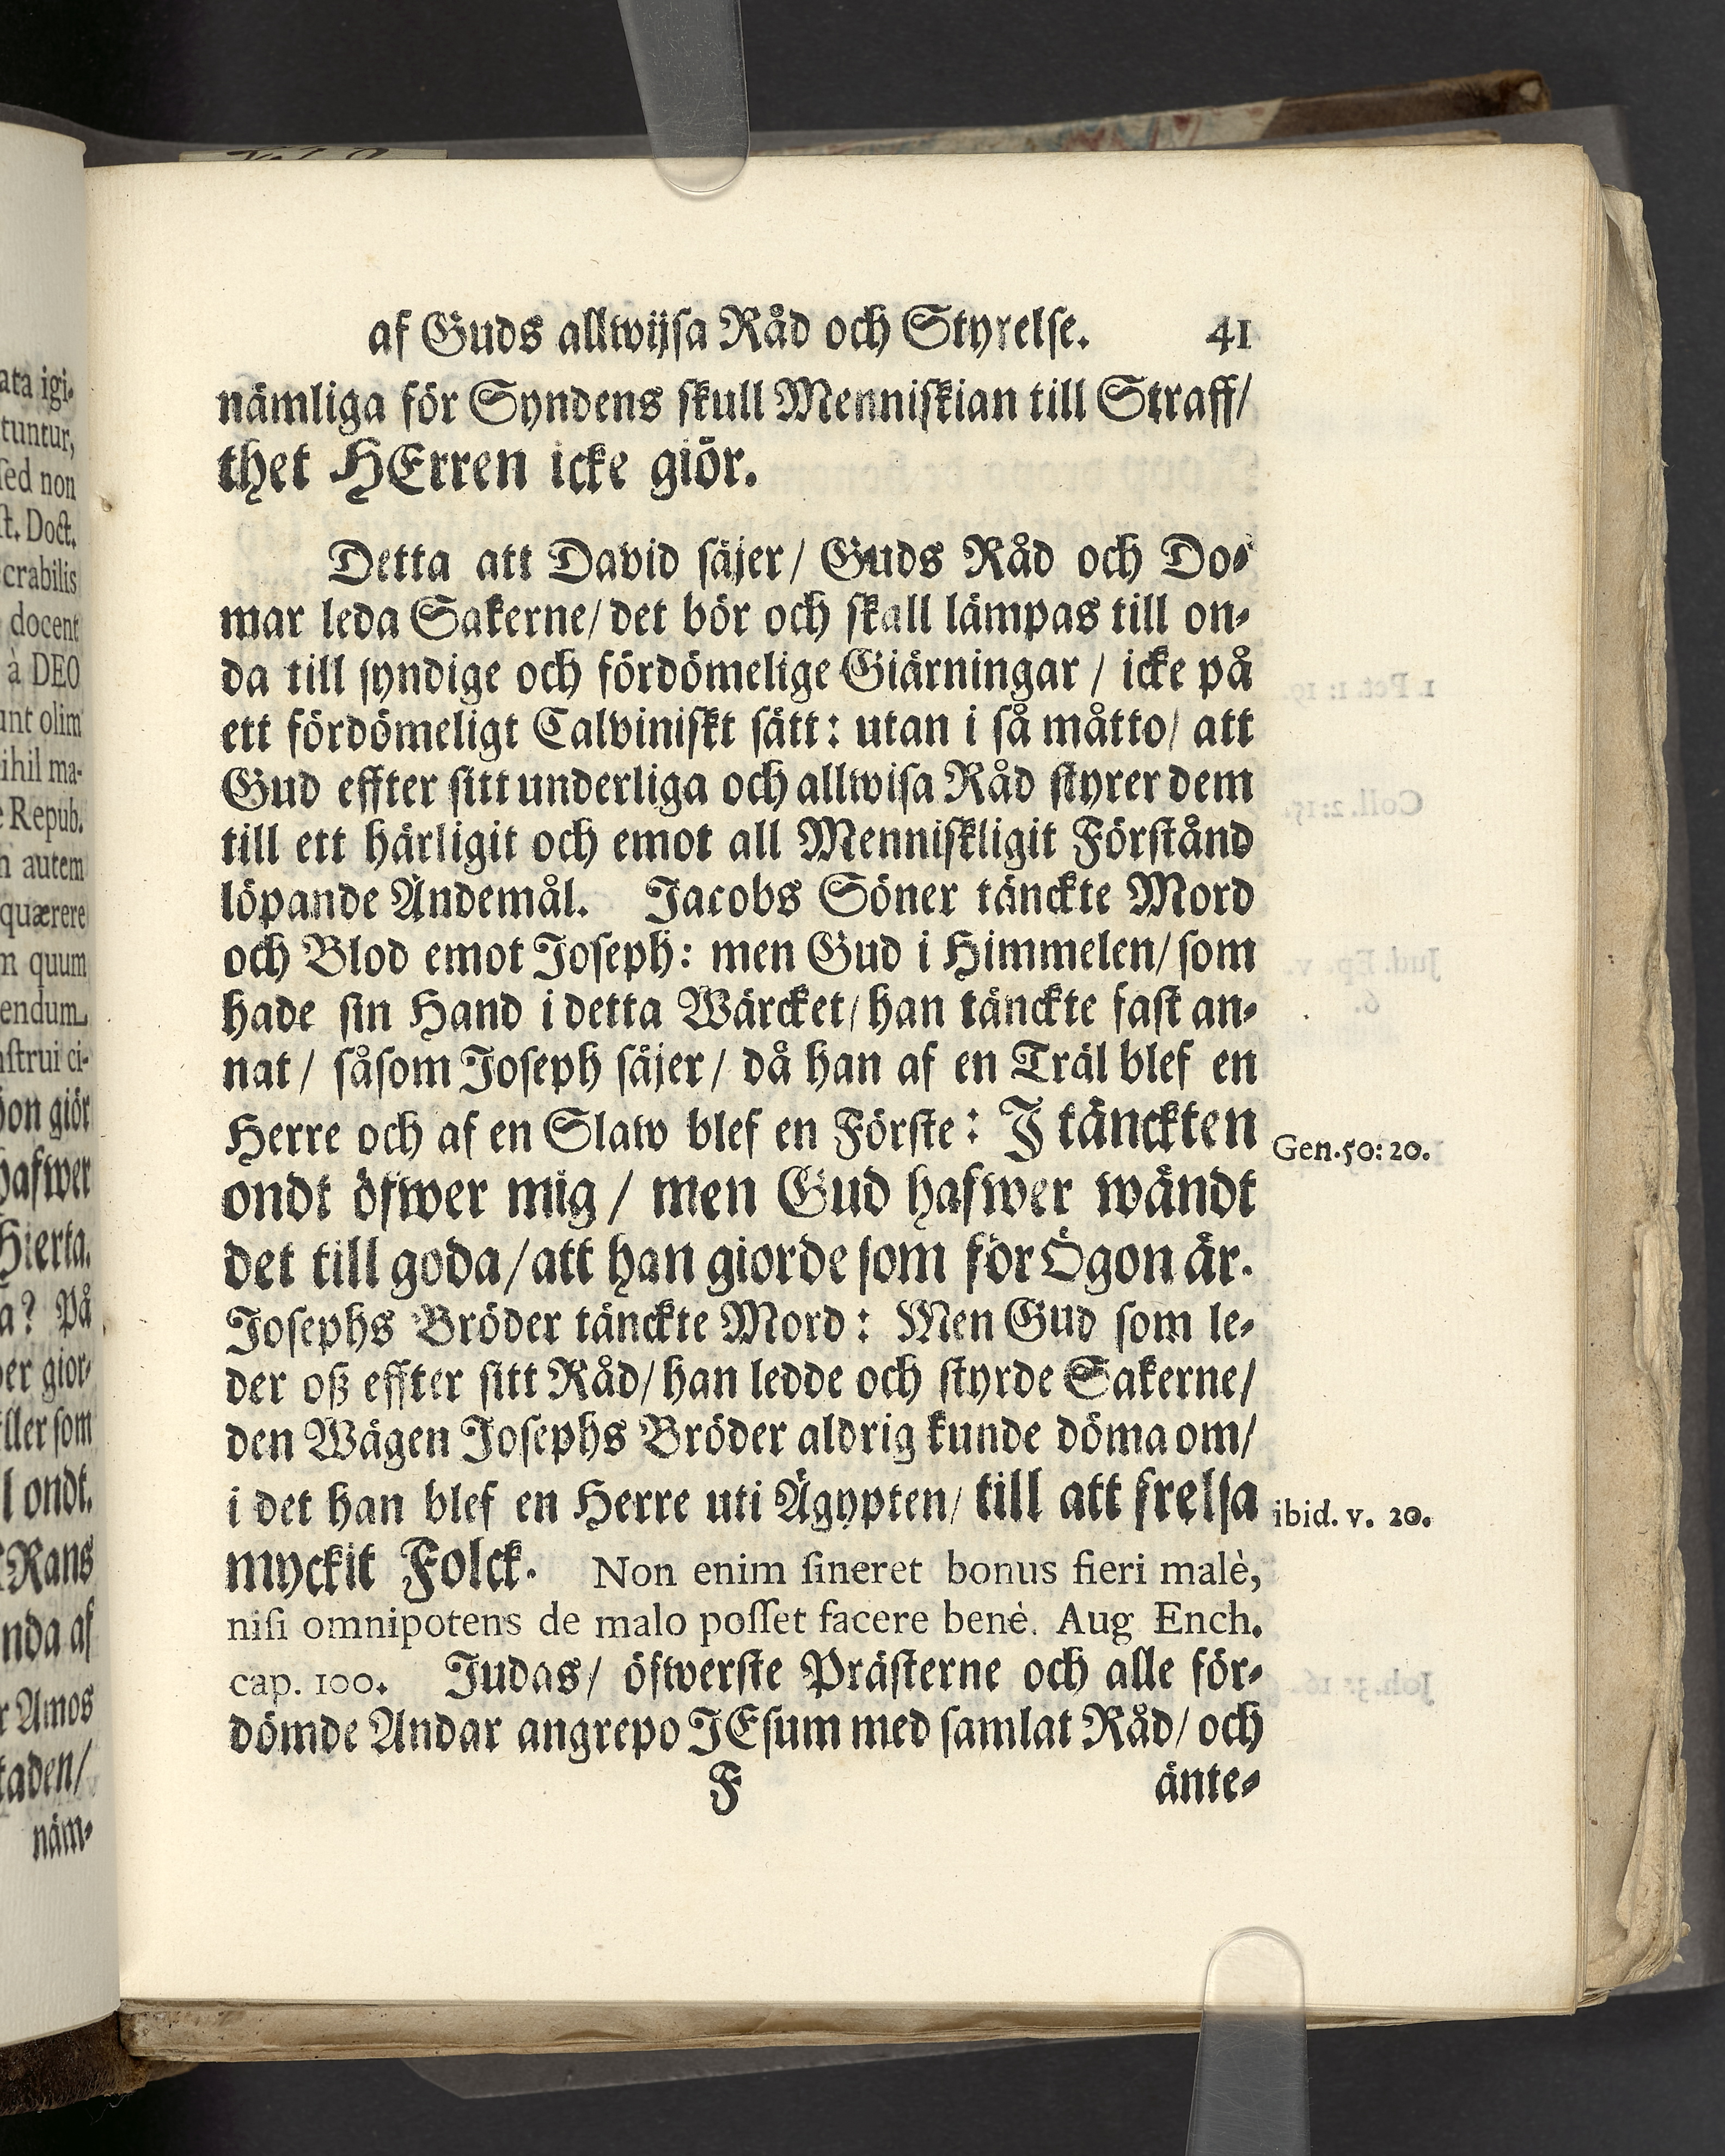 af Guds allwijsa Råd och Styrelse. 41
nämliga för Syndens skull Menniskian till Straff/
thet HErren icke giör.
Detta att David säjer/ Guds Råd och Do-
mar leda Sakerne/ det bör och skall lämpas till on-
da till syndige och fördömelige Giärningar / icke på
ett fördömeligt Calviniskt sätt: utan i så måtto/ att
Gud effter sitt underliga och allwisa Råd styrer dem
till ett härligit och emot all Menniskligit Förstånd
löpande Ändemål. Jacobs Söner tänckte Mord
och Blod emot Joseph: men Gud i Himmelen/ som
hade sin Hand i detta Wärcket/ han tänckte fast an-
nat / såsom Joseph säjer / då han af en Träl blef en
Herre och af en Slaw blef en Förste: J tänckten
Gen. 50: 20.
ondt öfwer mig / men Gud hafwer wändt
det till goda/ att han giorde som för Ögon är.
Josephs Bröder tänckte Mord: Men Gud som le-
der oß effter sitt Råd/ han ledde och styrde Sakerne/
den Wägen Josephs Bröder aldrig kunde döma om/
i det han blef en Herre uti Ägypten/ till att frelsa
ibid. v. 20.
myckit Folck. Non enim sineret bonus fieri malè,
nisi omnipotens de malo posset facere benè. Aug Ench.
cap. 100. Judas/ öfwerste Prästerne och alle för-
dömde Andar angrepo JEsum med samlat Råd/ och
F änte-